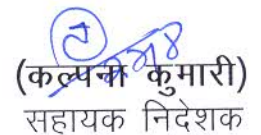 (कल्पना कुमारी)
सहायक निदेशक